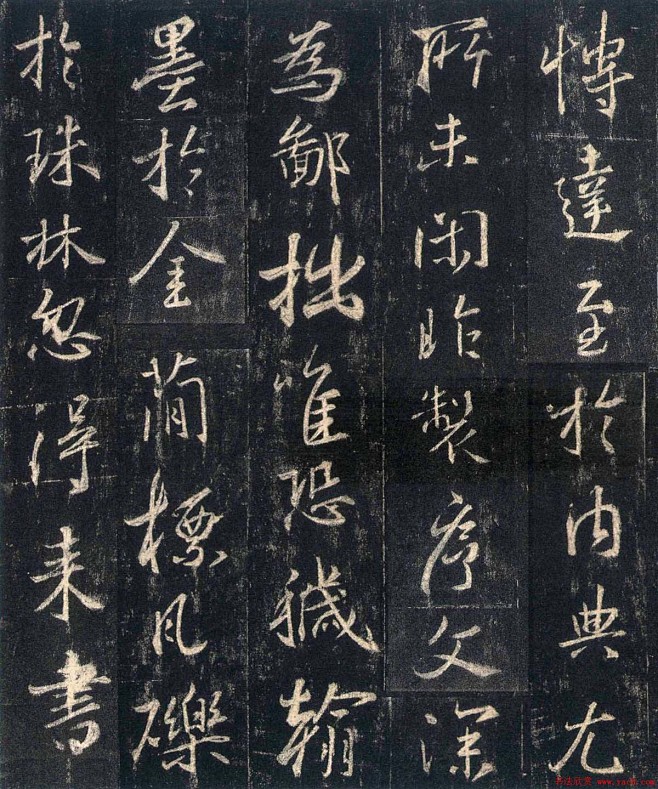 博達至於内典尤
所未閑昨製序文深
為鄙拙唯恐穢翰
墨於金簡標瓦礫
於珠林忽得来書
书法欣赏 www.yac8.com